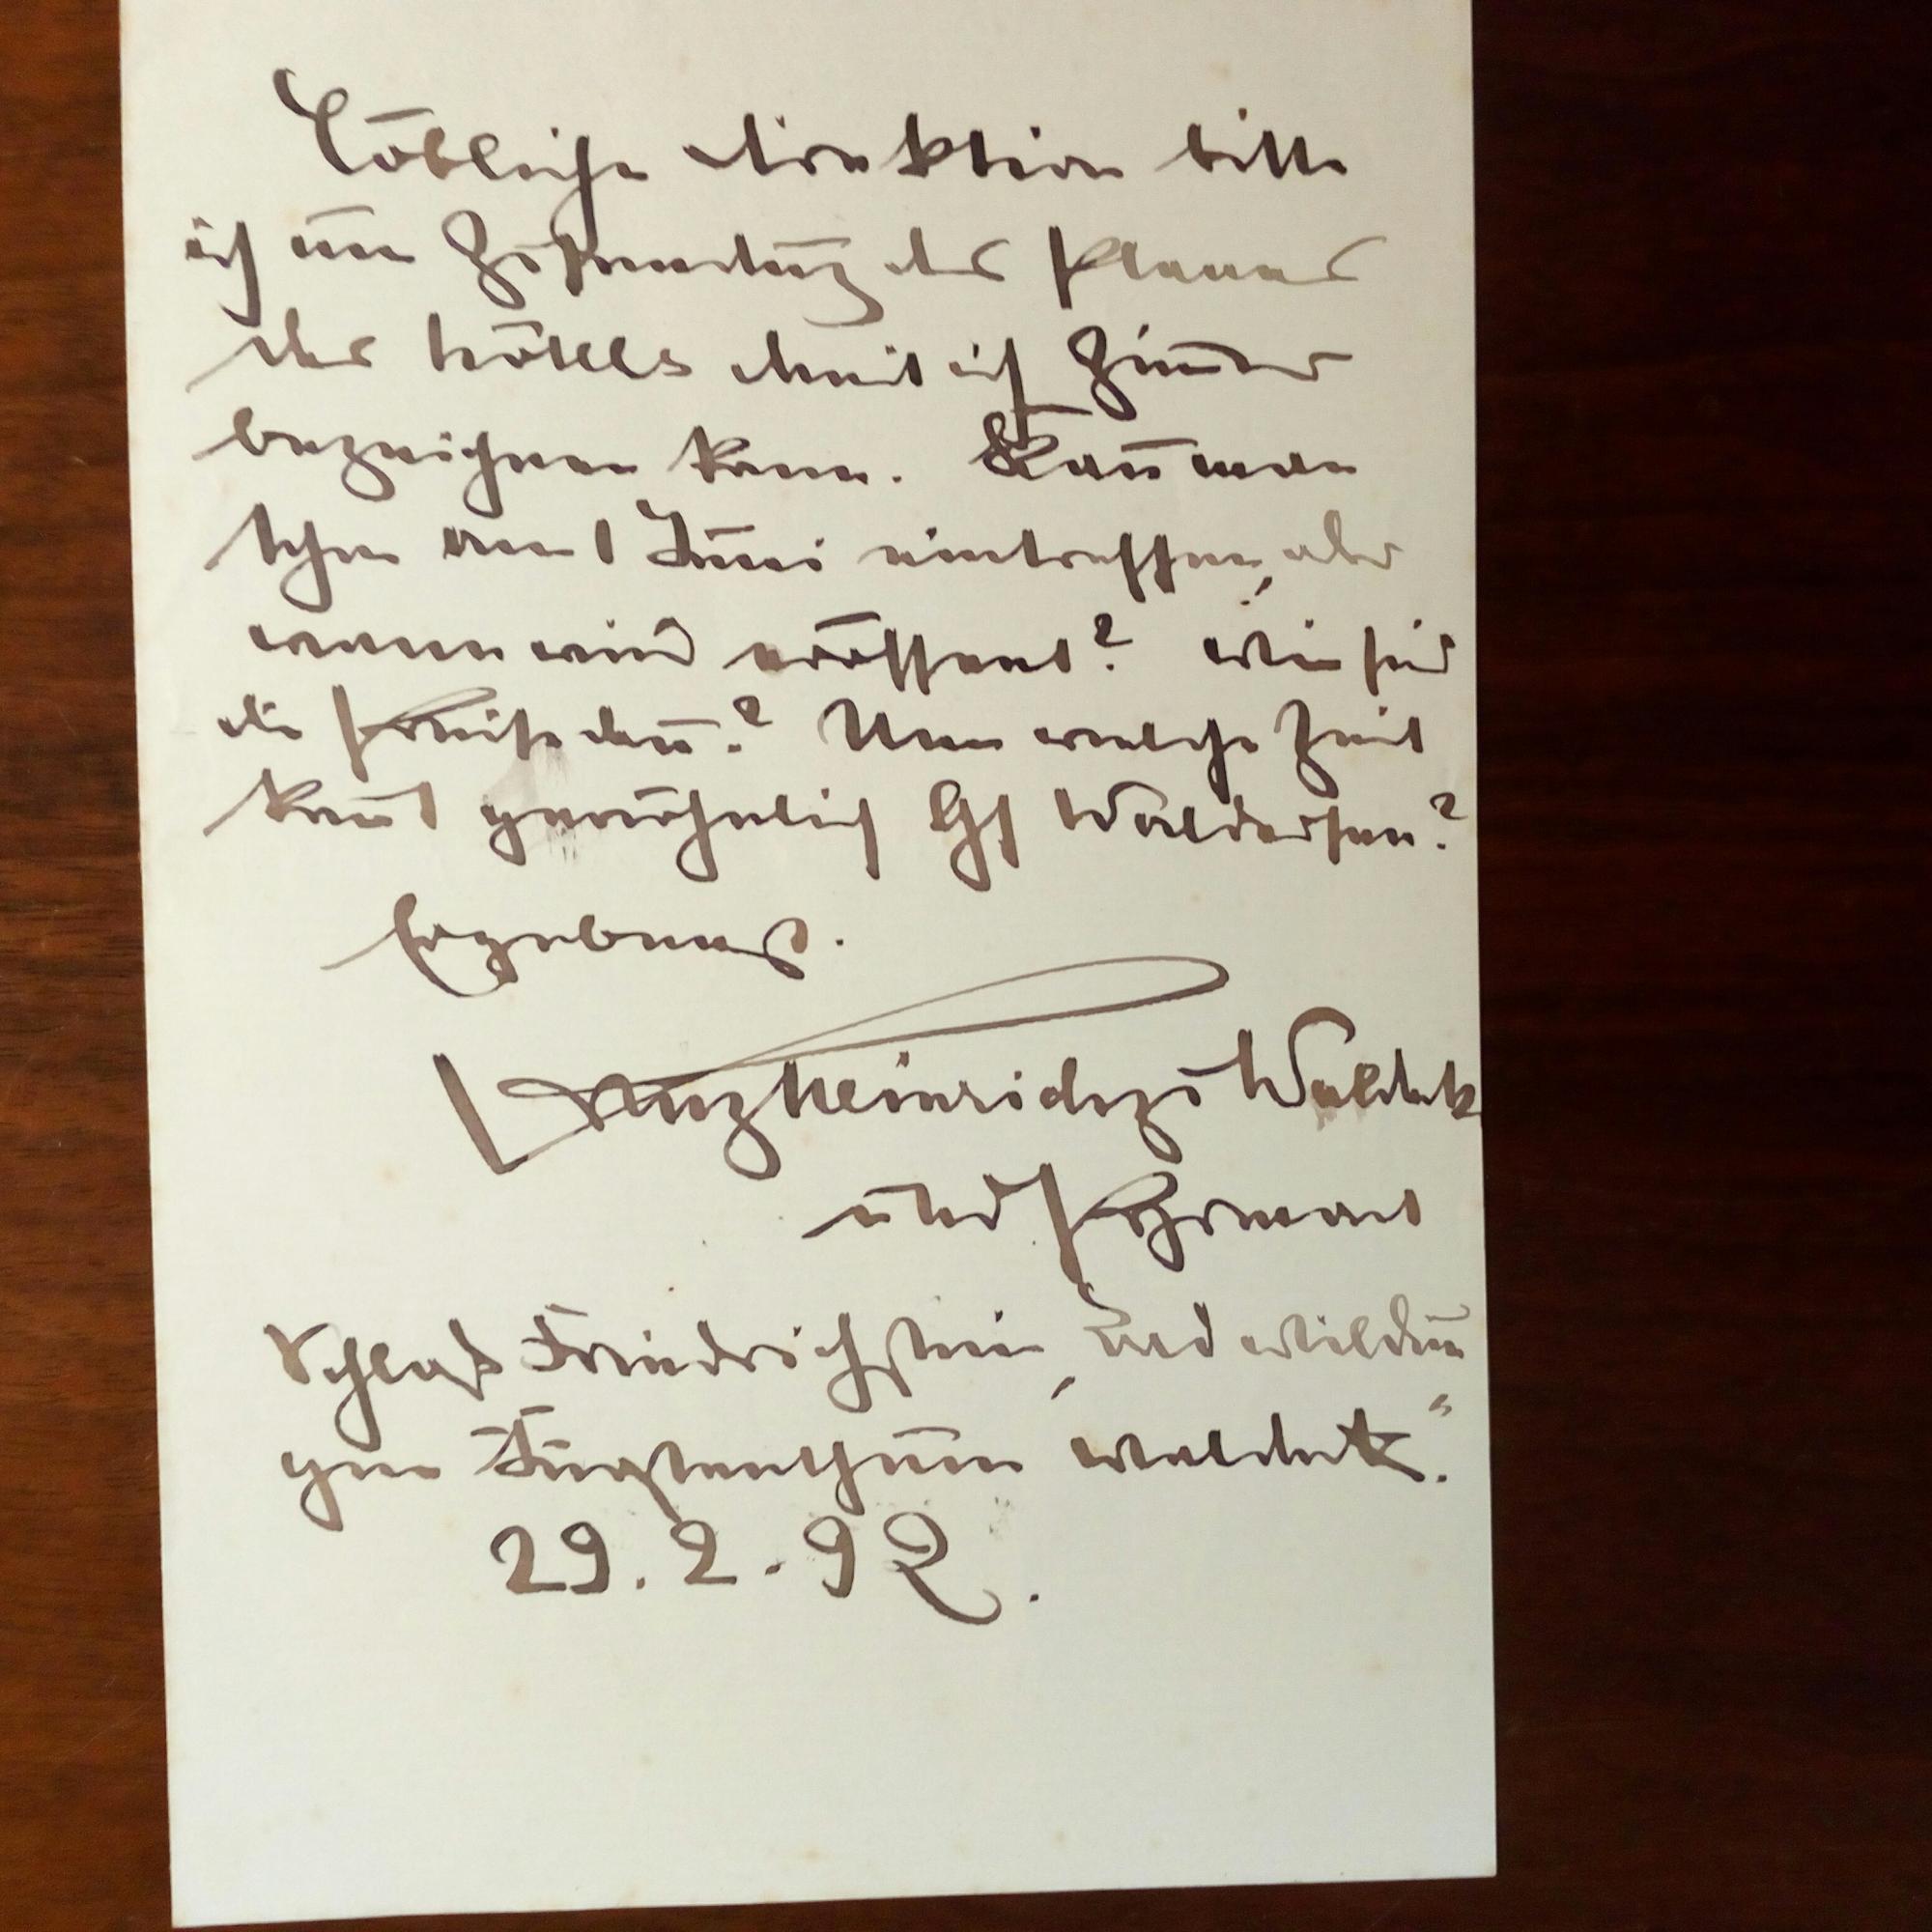 Löbliche Direktion bitte
ich um Zusendung des Planes
des Hôtels damit ich Zimmer
bezeichnen kann. Kan̄ man
schon am 1 Juni eintreffen, oder
wann wird eröffnet? Wie sind
die Preise dan̄? Um welche Zeit
kom̄t gewöhnlich Gf Waldersee?
Ergebenst.
Prinz Heinrich zu Waldeck
und Pyrmont
Schloß Friedrichstein, Bad Wildun
gen Fürstenthum Waldeck."
29.2.92.